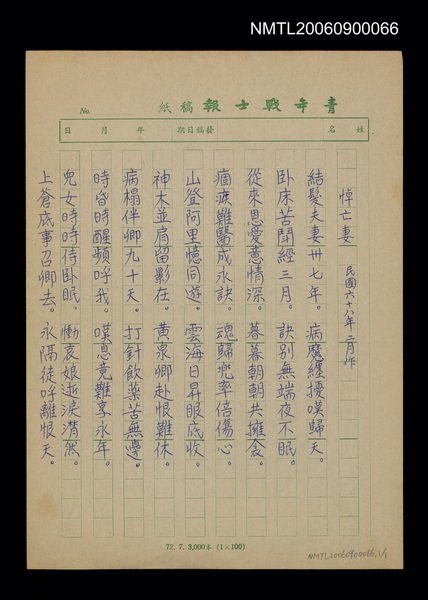 NMTL20060900066
青年戰士報稿紙 No.
姓名 發稿日期 年 月 日
悼亡妻 民國六十八年二月作
結髮夫妻卅七年。病魔纏擾嘆歸天。
臥床苦鬥經三月。訣別無端夜不眠。
從來恩愛意情深。暮暮朝朝共擁衾。
痼疾難醫成永訣。魂歸兜率倍傷心。
山登阿里憶同遊。雲海日昇眼底收。
神木並肩留影在。黃泉卿赴恨難休。
病榻伴卿九十天。打針飲藥苦無邊。
時昏時醒頻呼我。嘆息竟難享永年。
兒女時時侍臥眠。慟哀娘逝淚潸然。
上蒼底事召卿去。永隔徒呼離恨天。
72.7.3,000本(1×100)
NMTL20060900066.1/1